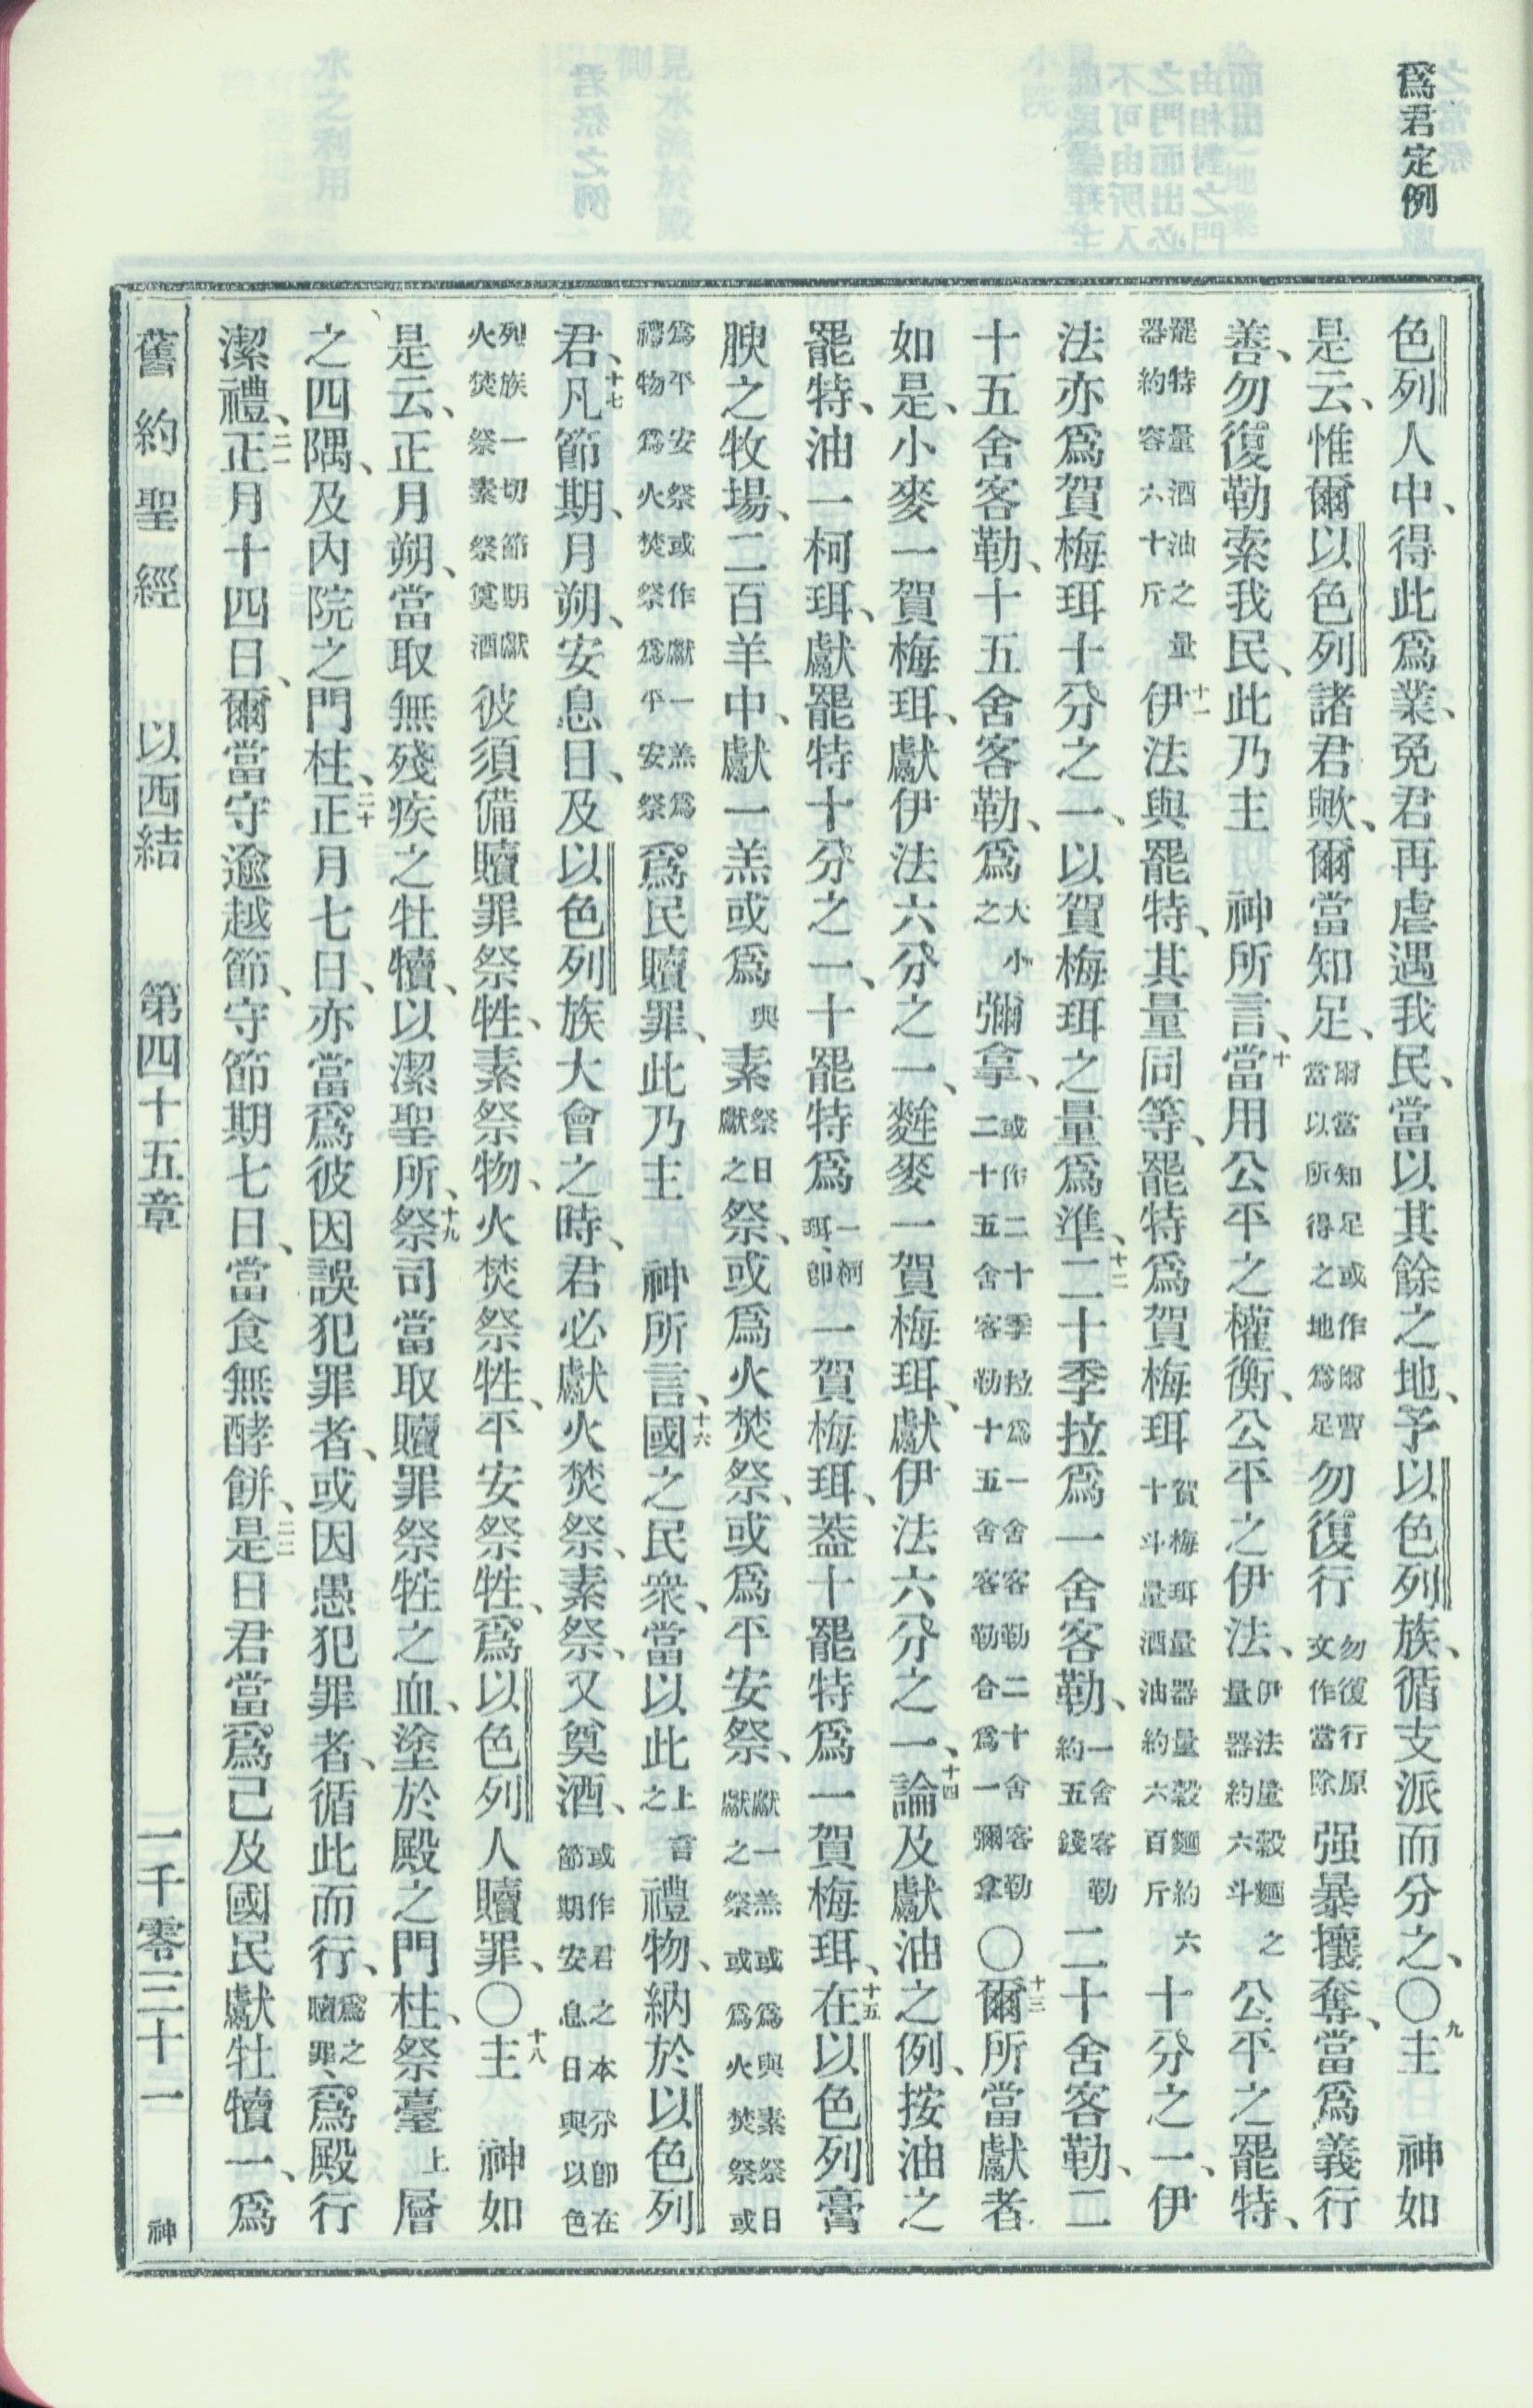 爲君定例
色列人中、得此爲業、免君再虐遇我民、當以其餘之地、予以色列族、循支派而分之、〇九主　神如
是云、惟爾以色列諸君歟、爾當知足、爾當知足或作爾曹當以所得之地爲足勿復行勿復行原文作當除强暴攘奪、當爲義行
善、勿復勒索我民、此乃主　神所言、十當用公平之權衡、公平之伊法、伊法量穀麵之量器約六斗公平之罷特、
罷特量酒油之量器約容六十斤十一伊法與罷特、其量同等、罷特爲賀梅珥賀梅珥量器量穀麵約六十斗量酒油約六百斤十分之一、伊
法亦爲賀梅珥十分之一、以賀梅珥之量爲準、十二二十季拉爲一舍客勒、一舍客勒約五錢二十舍客勒、二
十五舍客勒、十五舍客勒、爲大小之彌拿、或作二十季拉爲一舍客勒二十舍客勒二十五舍客勒十五舍客勒合爲一彌拿〇十三爾所當獻者
如是、小麥一賀梅珥、獻伊法六分之一、麰麥一賀梅珥、獻伊法六分之一、十四論及獻油之例、按油之
罷特、油一柯珥、獻罷特十分之一、十罷特爲一柯珥、卽一賀梅珥、蓋十罷特爲一賀梅珥、十五在以色列膏
腴之牧場、二百羊中、獻一羔或爲與素祭日獻之祭、或爲火焚祭、或爲平安祭、獻一羔或爲與素祭日獻之祭或爲火焚祭或
爲平安祭或作獻一羔爲禮物爲火焚祭爲平安祭爲民贖罪、此乃主　神所言、十六國之民衆、當以此上言之禮物、納於以色列
君、十七凡節期、月朔、安息日、及以色列族大會之時、君必獻火焚祭、素祭、又奠酒、或作君之本分卽在節期安息日與以色
列族一切節期獻火焚祭素祭奠酒彼須備贖罪祭牲、素祭物、火焚祭牲、平安祭牲、爲以色列人贖罪、〇十八主　神如
是云、正月朔、當取無殘疾之牡犢、以潔聖所、十九祭司當取贖罪祭牲之血、塗於殿之門柱、祭臺上層
之四隅、及內院之門柱、二十正月七日、亦當爲彼因誤犯罪者、或因愚犯罪者、循此而行、爲之贖罪、爲殿行
潔禮、二一正月十四日、爾當守逾越節、守節期七日、當食無酵餅、二二是日君當爲己及國民獻牡犢一、爲
舊約聖經　以西結　第四十五章　一千零三十一　神